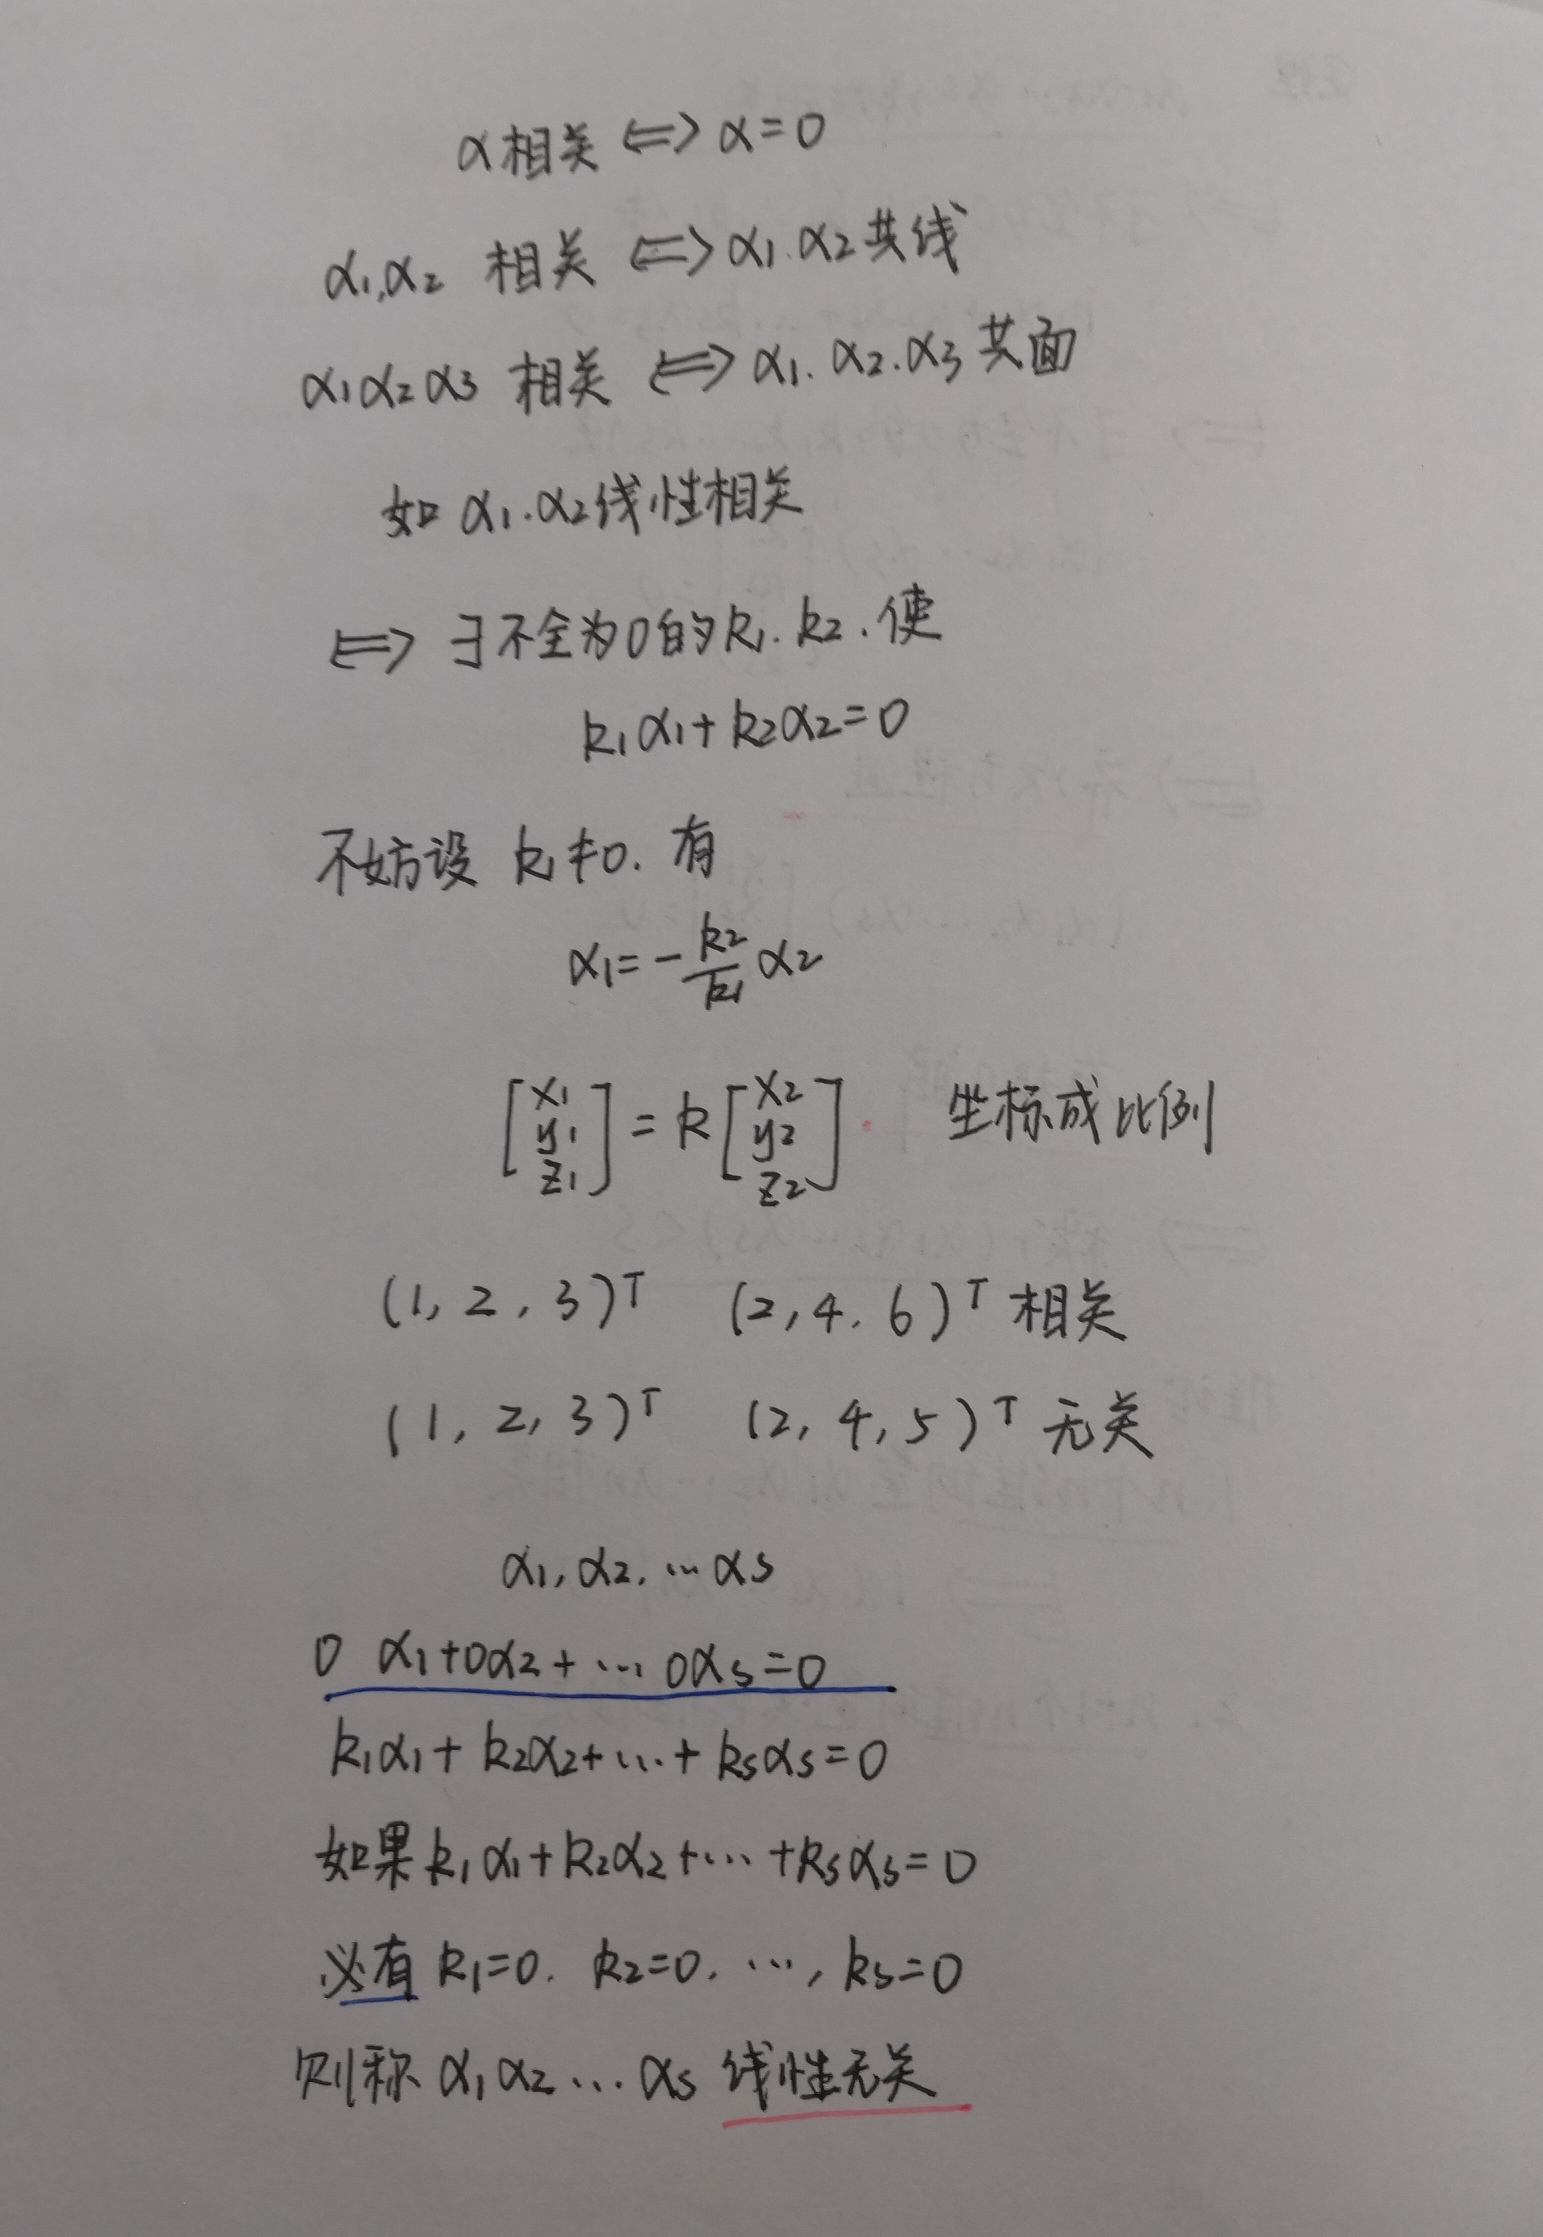 α相关 ⟺ α=0
α1,α2 相关 ⟺ α1.α2共线
α1α2α3 相关 ⟺ α1.α2.α3共面
如 α1.α2线性相关
⟺ ∃不全为0的k1.k2.使
k1α1+k2α2=0
不妨设 k1≠0.有
α1=-k2/k1 α2
[x1 y1 z1]=k[x2 y2 z2] 坐标成比例
(1,2,3)ᵀ (2,4,6)ᵀ相关
(1,2,3)ᵀ (2,4,5)ᵀ无关
α1,α2,…αs
0 α1+0α2+…0αs=0
k1α1+k2α2+…+ksαs=0
如果k1α1+k2α2+…+ksαs=0
必有 k1=0. k2=0. …, ks=0
则称 α1α2…αs 线性无关